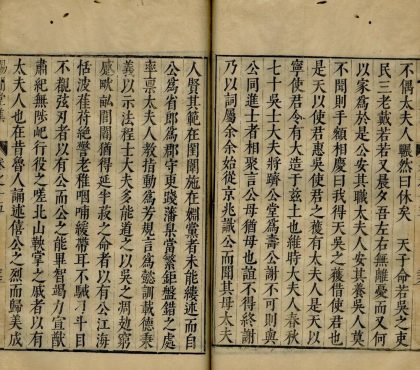 不偶太夫人囅然曰休矣　天子命若吳之吏
民三老戴若若又晨夕吾左右無離憂而又何
以家爲於是公安其職太夫人安其養吳人莫
不聞則手額相慶曰我得天吳之獲借使君也
是天以使君惠吳使君之獲有太夫人是天以
寧使君令有大造于茲土也維時太夫人春秋
七十吳士大夫將躋公堂爲壽公謝不可則與
公同進士者相聚言公母猶母也誼不得終謝
乃以詞屬余余始從京兆識公而聞其母太夫
人賢其範在閨闥施在嫺黨者未能縷述而自
公爲省郎爲郡守更踐藩臬當繁鉅盤錯之處
率稟太夫人教指動爲芳規言爲懿訓載德秉
義以示法程士大夫多能道之以吳之凋劾窮
蹙畝閭閻猶得延半菽之命者以有公江海
恬波萑苻絕警老稚咽哺緩帶耳不駴刁斗目
不覩弦刃者以有公而公之能畢智竭力宣猷
肅紀無陟屺行役之嗟北山鞅掌之慼者以有
太夫人也在昔魯人誦述僖公之烈而歸美成
卷之